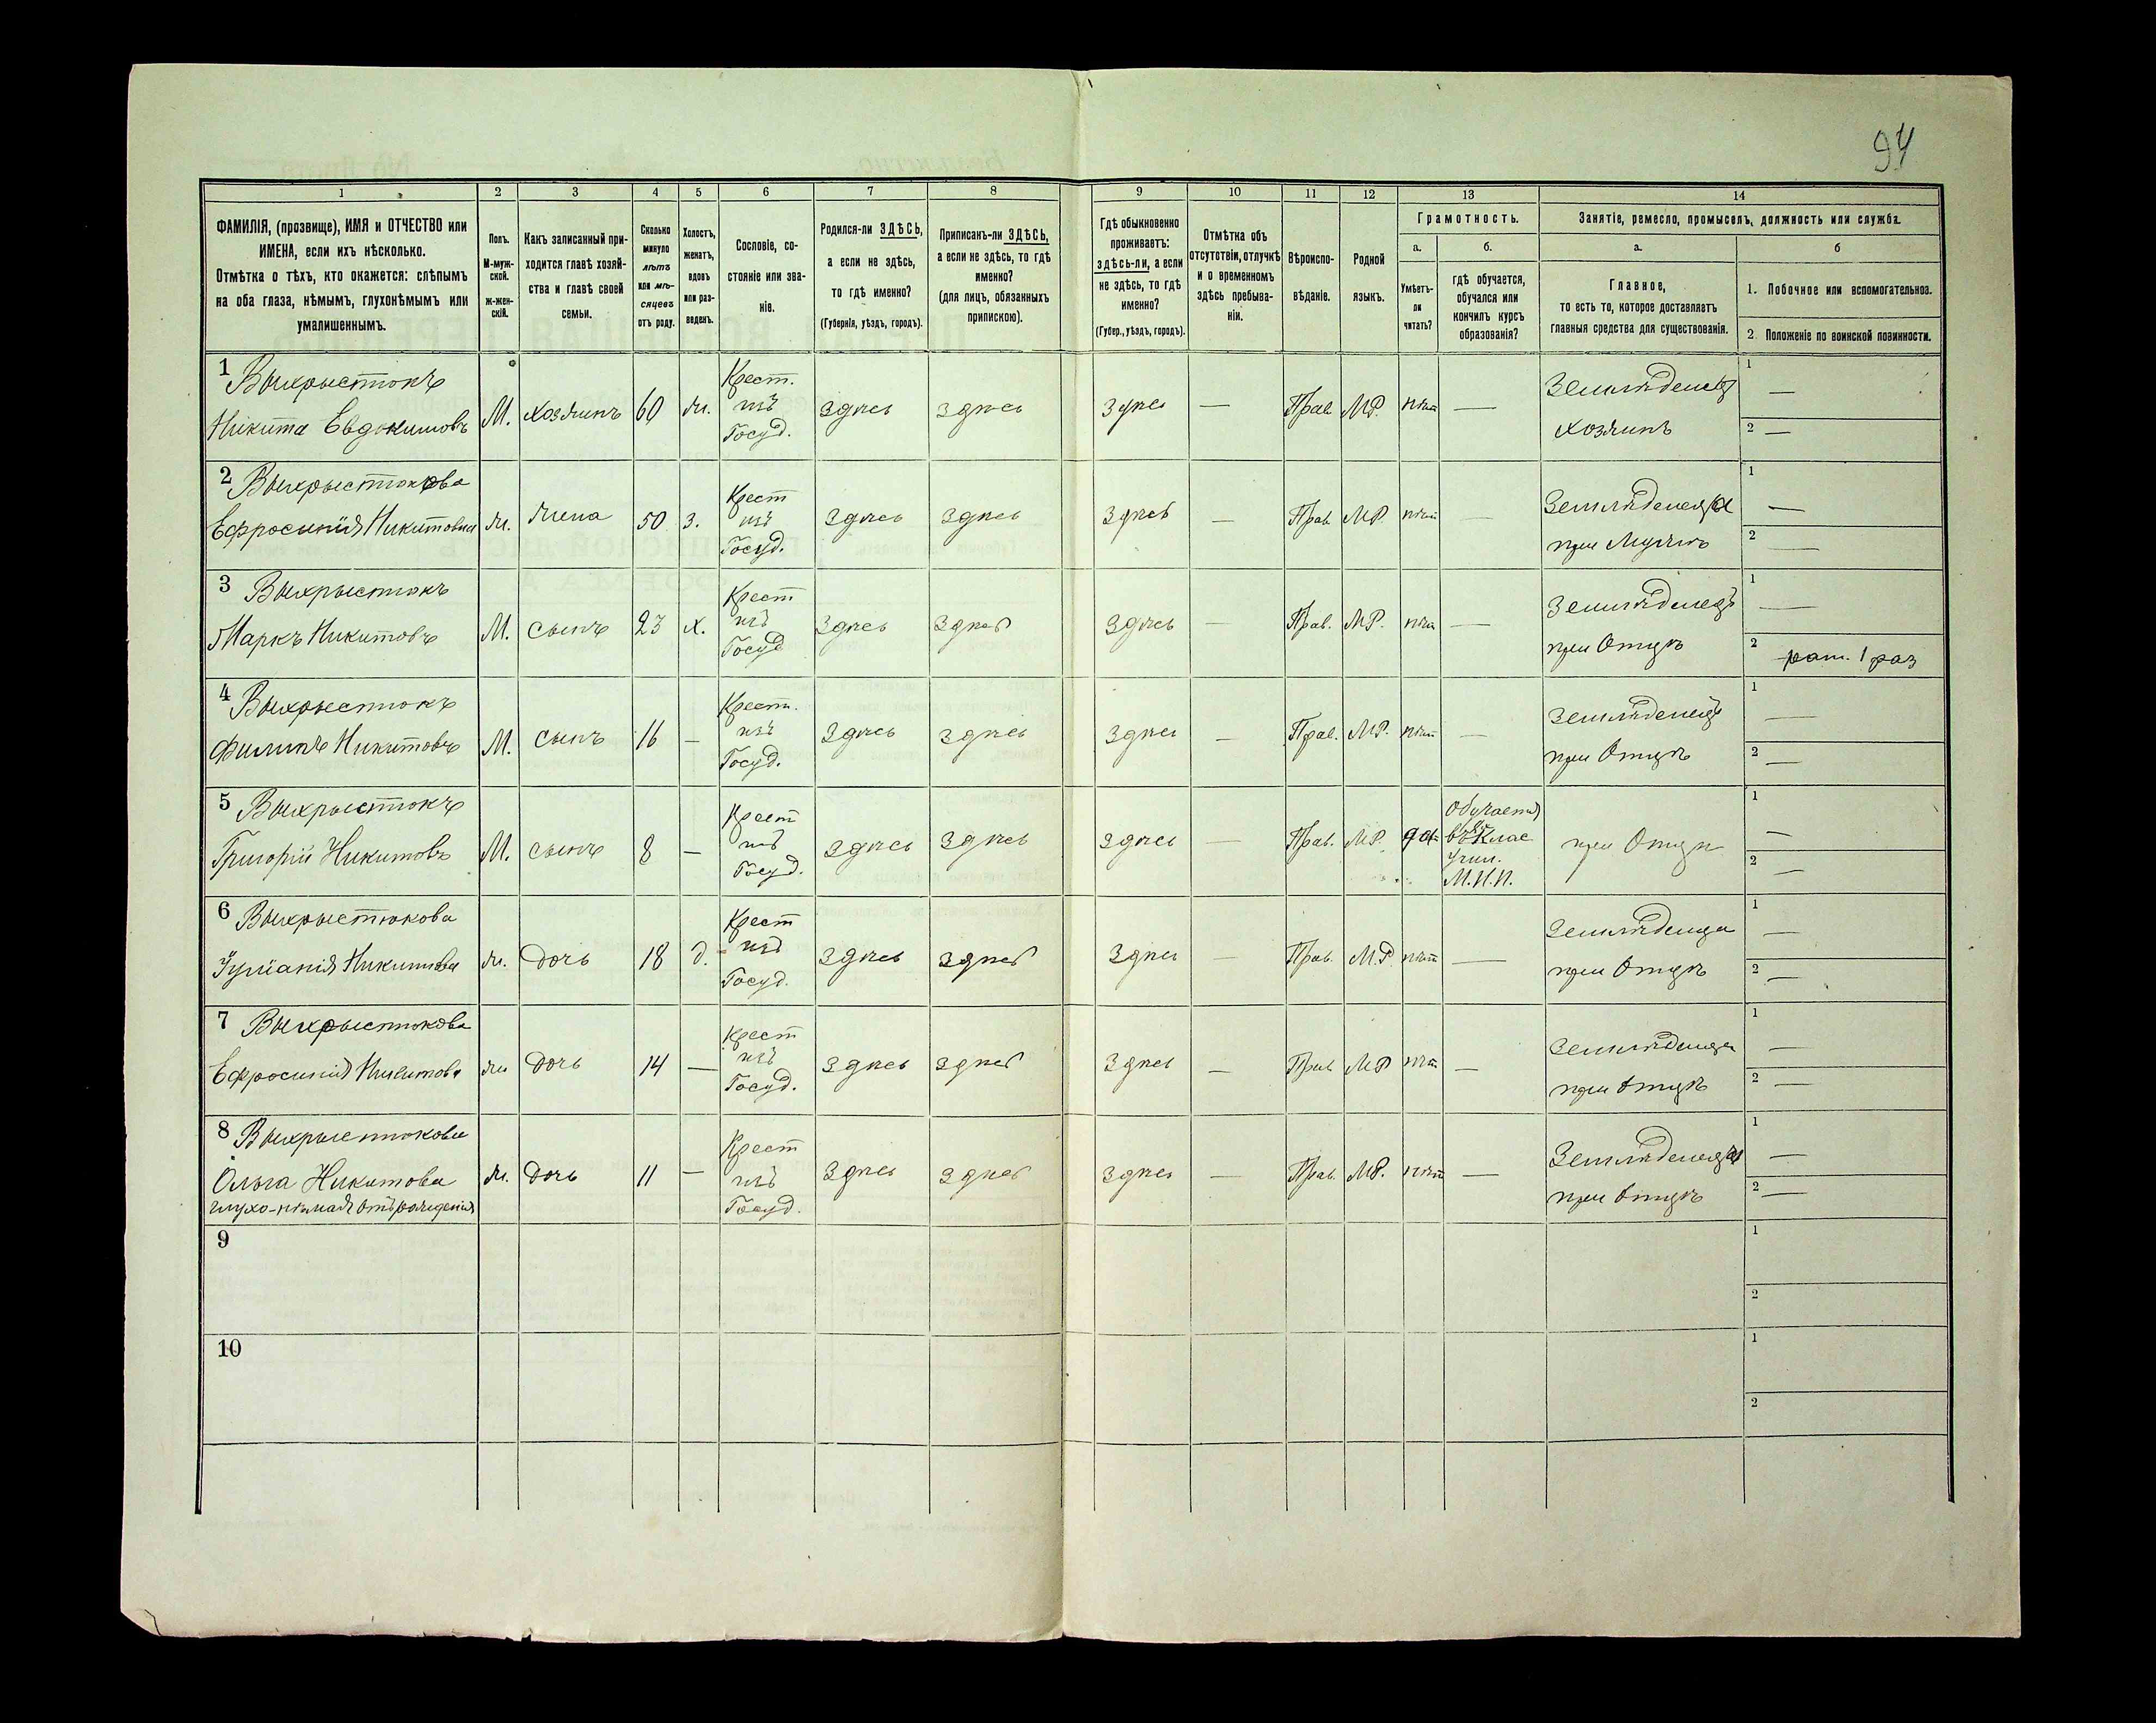 94
1 2 3 4 5 6 7 8 9 10 11 12 13 14
ФАМИЛІЯ, (прозвище), ИМЯ и ОТЧЕСТВО или
ИМЕНА, если ихъ нѣсколько.
Отмѣтка о тѣхъ, кто окажется: слѣпымъ
на оба глаза, нѣмымъ, глухонѣмымъ или
умалишеннымъ.
Полъ.
М-муж-
ской.
ж-жен-
скій.
Какъ записанный при-
ходится главѣ хозяй-
ства и главѣ своей
семьи.
Сколько
минуло
лѣтъ
или мѣ-
сяцевъ
отъ роду.
Холостъ,
женатъ,
вдовъ
или раз-
веденъ.
Сословіе, со-
стояніе или зва-
ніе.
Родился-ли ЗДѢСЬ,
а если не здѣсь,
то гдѣ именно?
(Губернія, уѣздъ, городъ).
Приписанъ-ли ЗДѢСЬ,
а если не здѣсь, то гдѣ
именно?
(для лицъ, обязанныхъ
припискою).
Гдѣ обыкновенно
проживаетъ:
здѣсь-ли, а если
не здѣсь, то гдѣ
именно?
(Губер., уѣздъ, городъ).
Отмѣтка объ
отсутствіи, отлучкѣ
и о временномъ
здѣсь пребыва-
ніи.
Вѣроиспо-
вѣданіе.
Родной
языкъ.
Грамотность.
а.
Умѣетъ-
ли
читать?
б.
гдѣ обучается,
обучался или
кончилъ курсъ
образованія?
Занятіе, ремесло, промыселъ, должность или служба.
а.
Главное,
то есть то, которое доставляетъ
главныя средства для существованія.
б
1. Побочное или вспомогательное.
2. Положеніе по воинской повинности.
1 Выхрыстюкъ
Никита Евдокимовъ
М. хозяинъ 60 ж.
Крест.
изъ
Госуд.
здѣсь здѣсь здѣсь — Прав МР. нѣт —
Земледѣлецъ
хозяинъ
1 —
2 —
2 Выхрыстюкова
Ефросинія Никитовна
ж. жена 50 з.
Крест
изъ
Госуд.
здѣсь здѣсь здѣсь — Прав. МР. нѣт —
Земледѣлица
при Мужѣ
1 —
2 —
3 Выхрыстюкъ
Маркъ Никитовъ
М. сынъ 23 х.
Крест
изъ
Госуд
здѣсь здѣсь здѣсь — Прав. МР. нѣт —
Земледѣлецъ
при Отцѣ
1 —
2 рат. 1 раз
4 Выхрыстюкъ
Филипъ Никитовъ
М. сынъ 16 —
Крест.
изъ
Госуд.
здѣсь здѣсь здѣсь — Прав. МР. нѣт —
Земледѣлецъ
при Отцѣ
1 —
2 —
5 Выхрыстюкъ
Григорій Никитовъ
М. сынъ 8 —
Крест
изъ
Госуд.
здѣсь здѣсь здѣсь — Прав. МР. да
Обучается
Клас
учил.
М.Н.П.
при Отцѣ
1 —
2 —
6 Выхрыстюкова
Іуліанія Никитова
ж. дочь 18 д.
Крест
изъ
Госуд.
здѣсь здѣсь здѣсь — Прав. М.Р. нѣт —
Земледѣлица
при Отцѣ
1 —
2 —
7 Выхрыстюкова
Ефросинія Никитова
ж дочь 14 —
Крест
изъ
Госуд.
здѣсь здѣсь здѣсь — Прав МР нѣт —
Земледѣлица
при Отцѣ
1 —
2 —
8 Выхрыстюкова
Ольга Никитова
глухо-нѣмая отъ рожденія
ж. дочь 11 —
Крест
изъ
Госуд.
здѣсь здѣсь здѣсь — Прав. МР. нѣт —
Земледѣлица
при Отцѣ
1 —
2 —
9
1
2
10
1
2